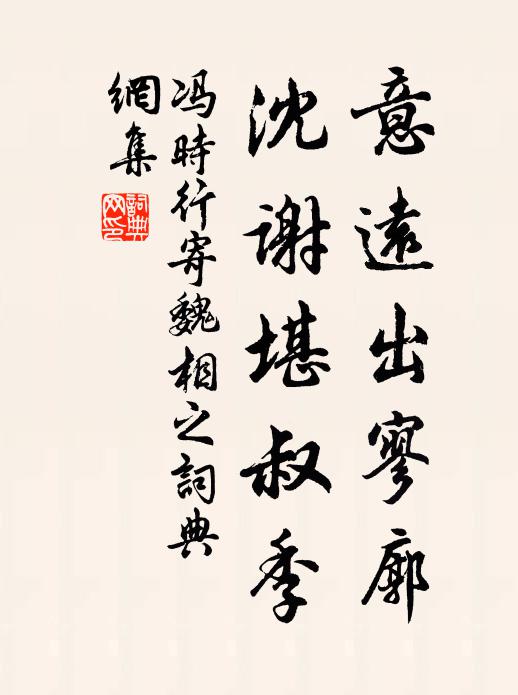 意遠出寥廓
沈謝堪叔季
冯時行寄魏相之詞典
網集
詞典
网印